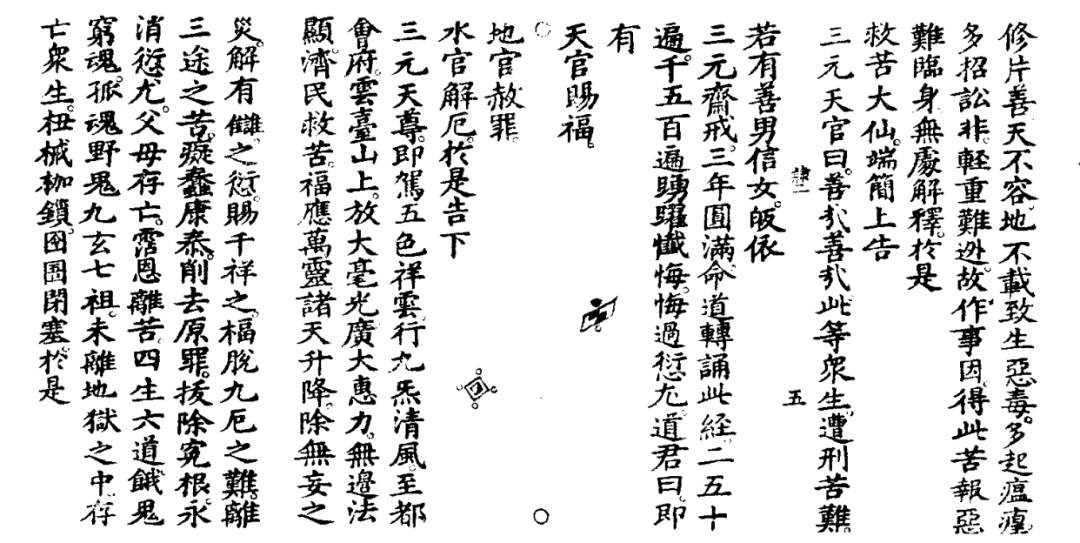 修片善天不容地不載致生惡毒。多起瘟㾮。
多招訟非。軽重難迯。故作事因。得此苦報惡
難臨身。無處解釋。於是
救苦大仙。端簡上告
三元天官曰。善㢤善㢤此等衆生。遭刑苦難。
五
若有善男信女。皈依
三元齋戒。三年圓滿。命道轉誦此經。二五十
遍。千五百遍。踴躍懺悔。悔過愆尤。道君曰。即
有
天官賜福。
地官赦罪。
水官解厄。於是告下
三元天尊。即駕五色祥雲。行九炁清風。至都
會府。雲臺山上。放大毫光。廣大惠力。無邊法
顯。濟民救苦。福應萬靈諸天升降。除無妄之
災。解有讎之愆。賜千祥之福。脫九厄之難。離
三途之苦。癡蠢康泰。削去原罪。拔除寃根。永
消愆尤。父母存亡。霑恩離苦。四生六道餓鬼
窮魂。孤魂野鬼九玄七祖。未離地獄之中。存
亡衆生。杻械枷鎖。囹圄閉塞。於是